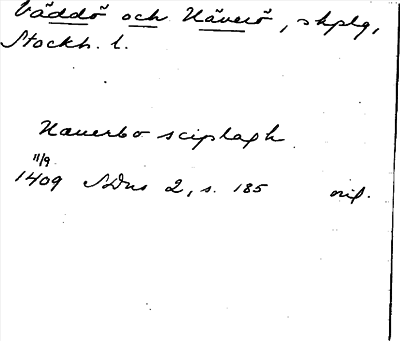 Väddö och Häverö, skplg,
Stockh. l.
Hauerbo sciplagh
11/9
1409 SDns 2, s. 185 orig.